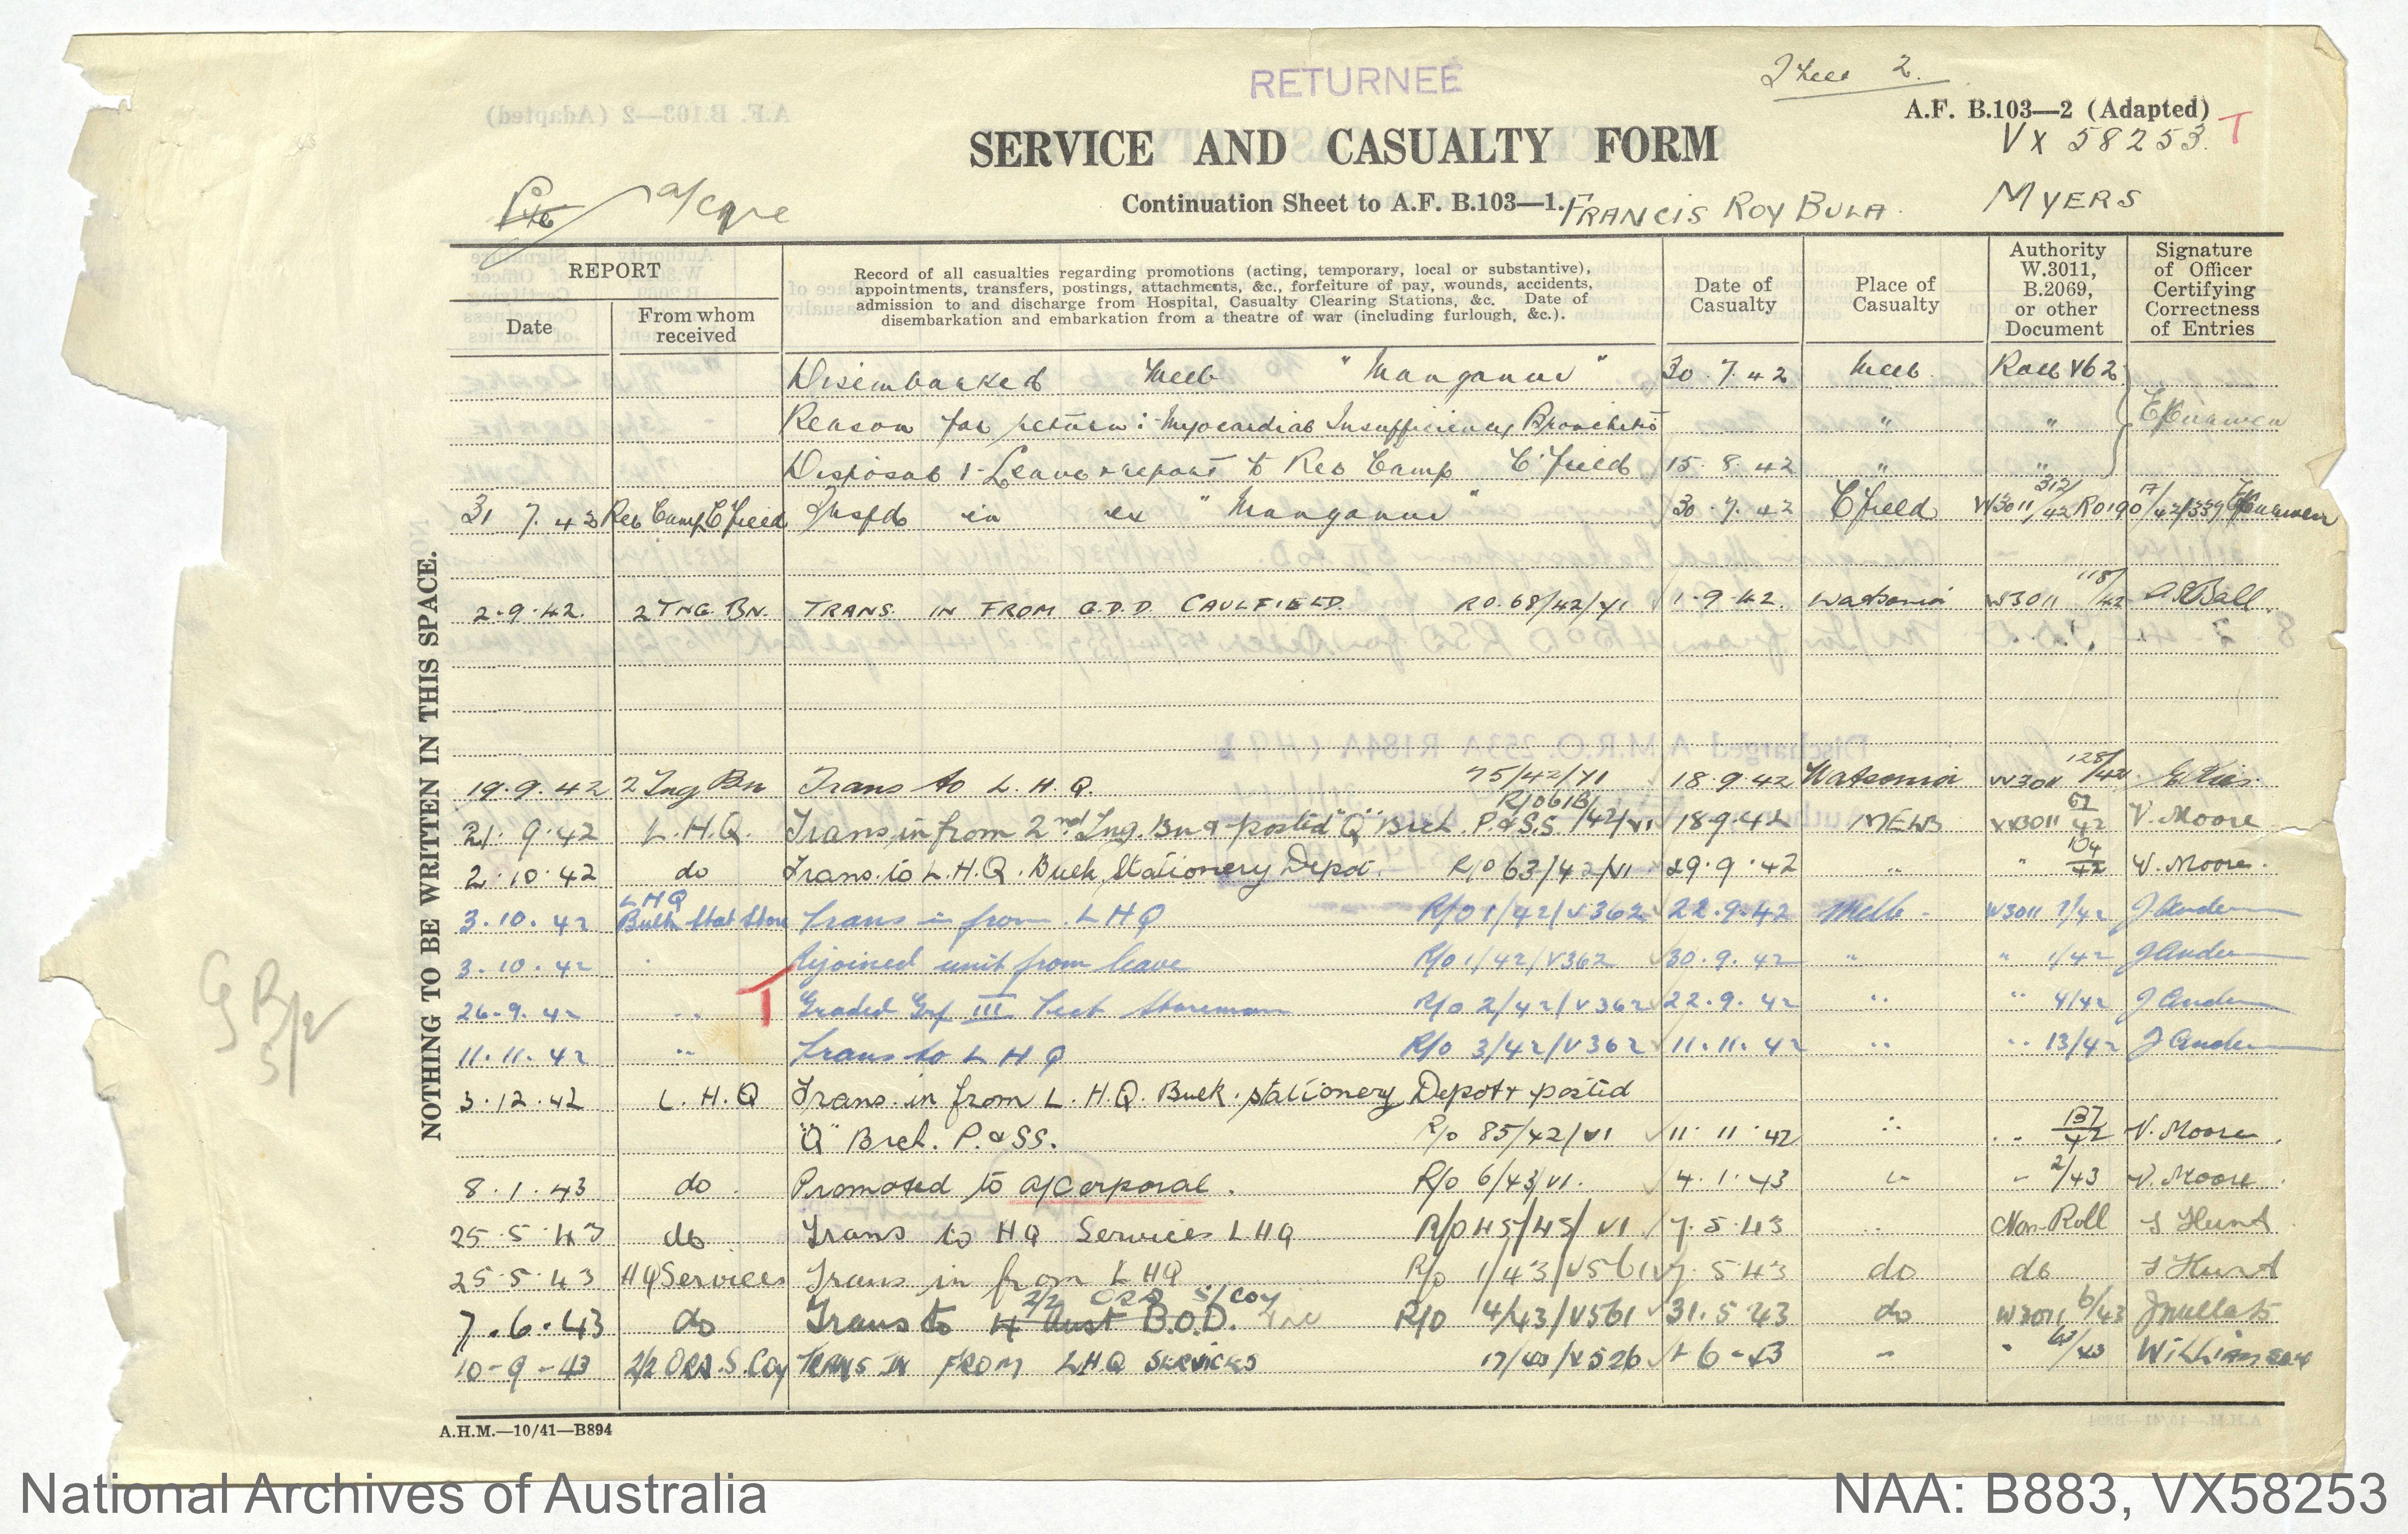 RETURNEE
Sheet 2.
A.F. B.103—2 (Adapted)
VX 58253. T
SERVICE AND CASUALTY FORM
Pte a/Cpl
Continuation Sheet to A.F. B.103—1. FRANCIS ROY BULA. MYERS
REPORT
Date
From whom received
Record of all casualties regarding promotions (acting, temporary, local or substantive),
appointments, transfers, postings, attachments, &c., forfeiture of pay, wounds, accidents,
admission to and discharge from Hospital, Casualty Clearing Stations, &c. Date of
disembarkation and embarkation from a theatre of war (including furlough, &c.).
Date of Casualty
Place of Casualty
Authority W.3011, B.2069, or other Document
Signature of Officer Certifying Correctness of Entries
Disembarked Melb "Manganui" 30.7.42 Melb Roll V62
Reason for return :- Myocardial Insufficiency Bronchitis " "
Disposal :- Leave & report to Rec Camp C'field 15.8.42 " "
31 7.42 Rec Camp C'field Trsfd in ex "Manganui" 30.7.42 C'field W3011 312/42 RO190
2.9.42. 2 TNG. BN. TRANS. IN FROM G.D.D. CAULFIELD. RO.68/42/Y1 1.9.42. Watsonia W3011 118/42 Ball.
19.9.42 2 Tng Bn Trans to L.H.Q. 75/42/Y1 18.9.42 Watsonia W3011 128/42
21.9.42 L.H.Q. Trans in from 2nd Tng. Bn & posted "Q" Brch. P.&S.S. R/O61B/42/VI 18.9.42 MELB W3011 67/42 V. Moore
2.10.42 do Trans. to L.H.Q. Bulk Stationery Depot. R/O 63/42/VI 29.9.42 " " 104/42 V. Moore.
3.10.42 LHQ Bulk Stat Store Trans in from LHQ R/O 1/42/V362 22.9.42 Melb. W3011 1/42 J Ander
3.10.42 " Rejoined unit from leave R/O 1/42/V362 30.9.42 " " 1/42 J Ander
26.9.42 " T Graded Grp III Tect Storeman R/O 2/42/V362 22.9.42 " " 4/42 J Ander
11.11.42 " Trans to LHQ R/O 3/42/V362 11.11.42 " " 13/42 J Ander
3.12.42 L.H.Q Trans. in from L.H.Q. Bulk. Stationery Depot & posted
"Q" Brch. P.&SS. R/O 85/42/VI 11.11.42 " " 137/42 V. Moore.
8.1.43 do. Promoted to a/Corporal. R/O 6/43/VI. 4.1.43 " " 2/43 V. Moore.
25.5.43 do. Trans to HQ Services LHQ R/O 45/43/VI 7.5.43 " Non-Roll Hunt
25.5.43 HQ Services Trans in from LHQ R/O 1/43/V561 7.5.43 do do Hunt
2/2 ORD S/Coy
7.6.43 do Trans to 4 Aust B.O.D. R/O 4/43/V561 31.5.43 do W3011 6/43
10-9-43 2/2 ORD.S.Coy TRANS IN FROM LHQ SERVICES 17/43/V526 1-6-43 " " 63/43 Williamson
NOTHING TO BE WRITTEN IN THIS SPACE.
A.H.M.—10/41—B894
National Archives of Australia
NAA: B883, VX58253